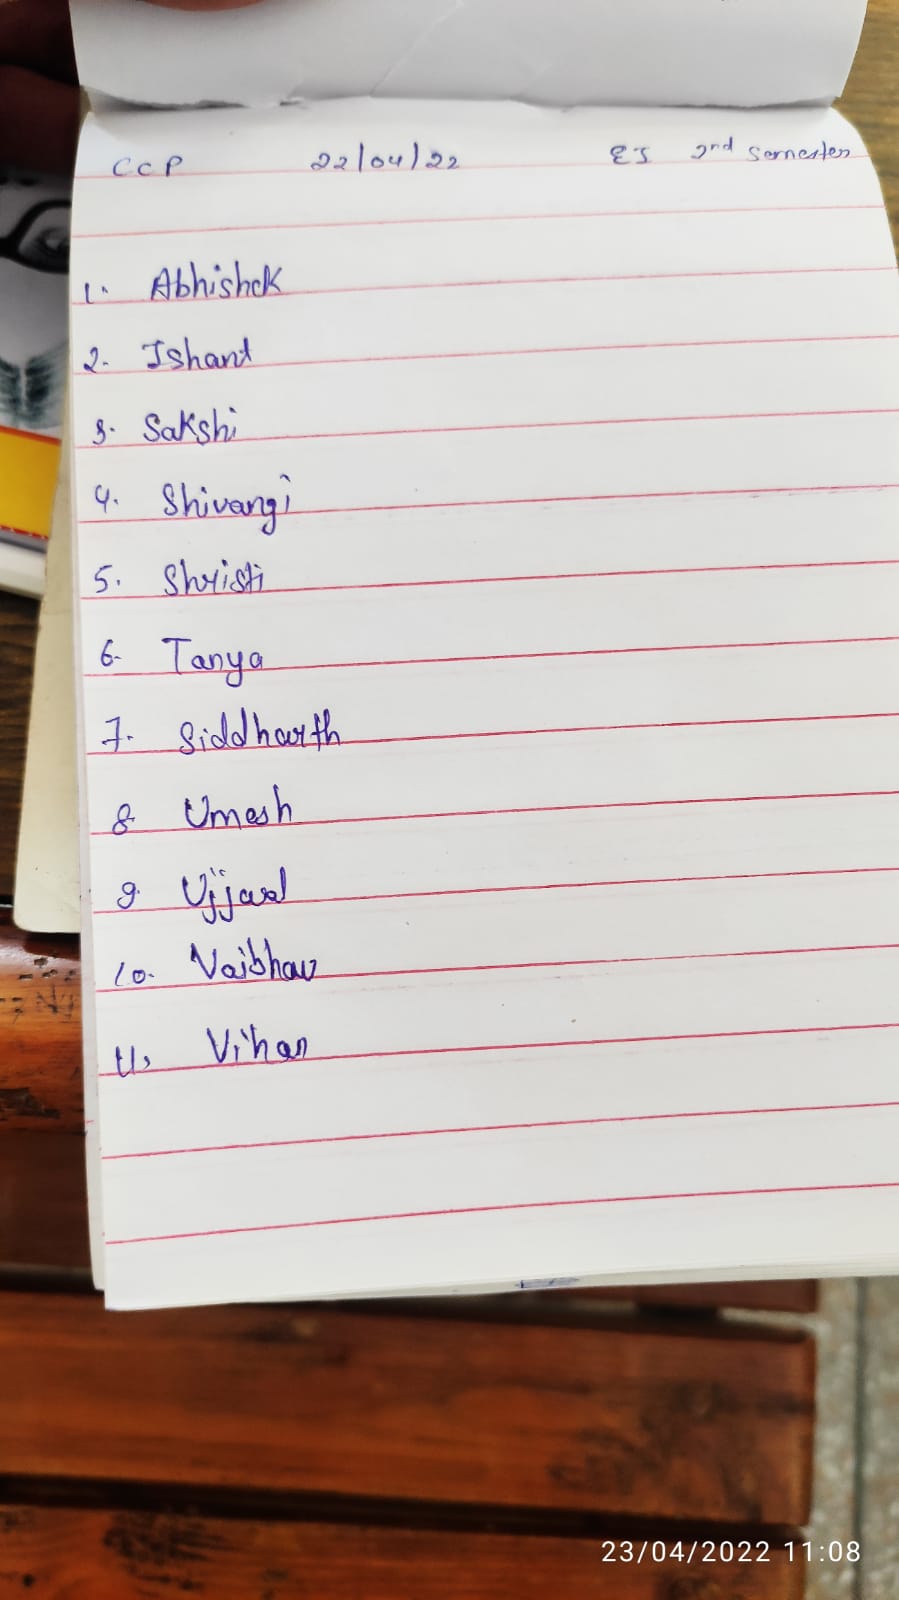 CCP 22/04/22 EJ 2nd Semester
1. Abhishek
2. Ishant
3. Sakshi
4. Shivangi
5. Shristi
6. Tanya
7. Siddharth
8 Umesh
9. Ujjawal
10. Vaibhav
11. Vihan
23/04/2022 11:08